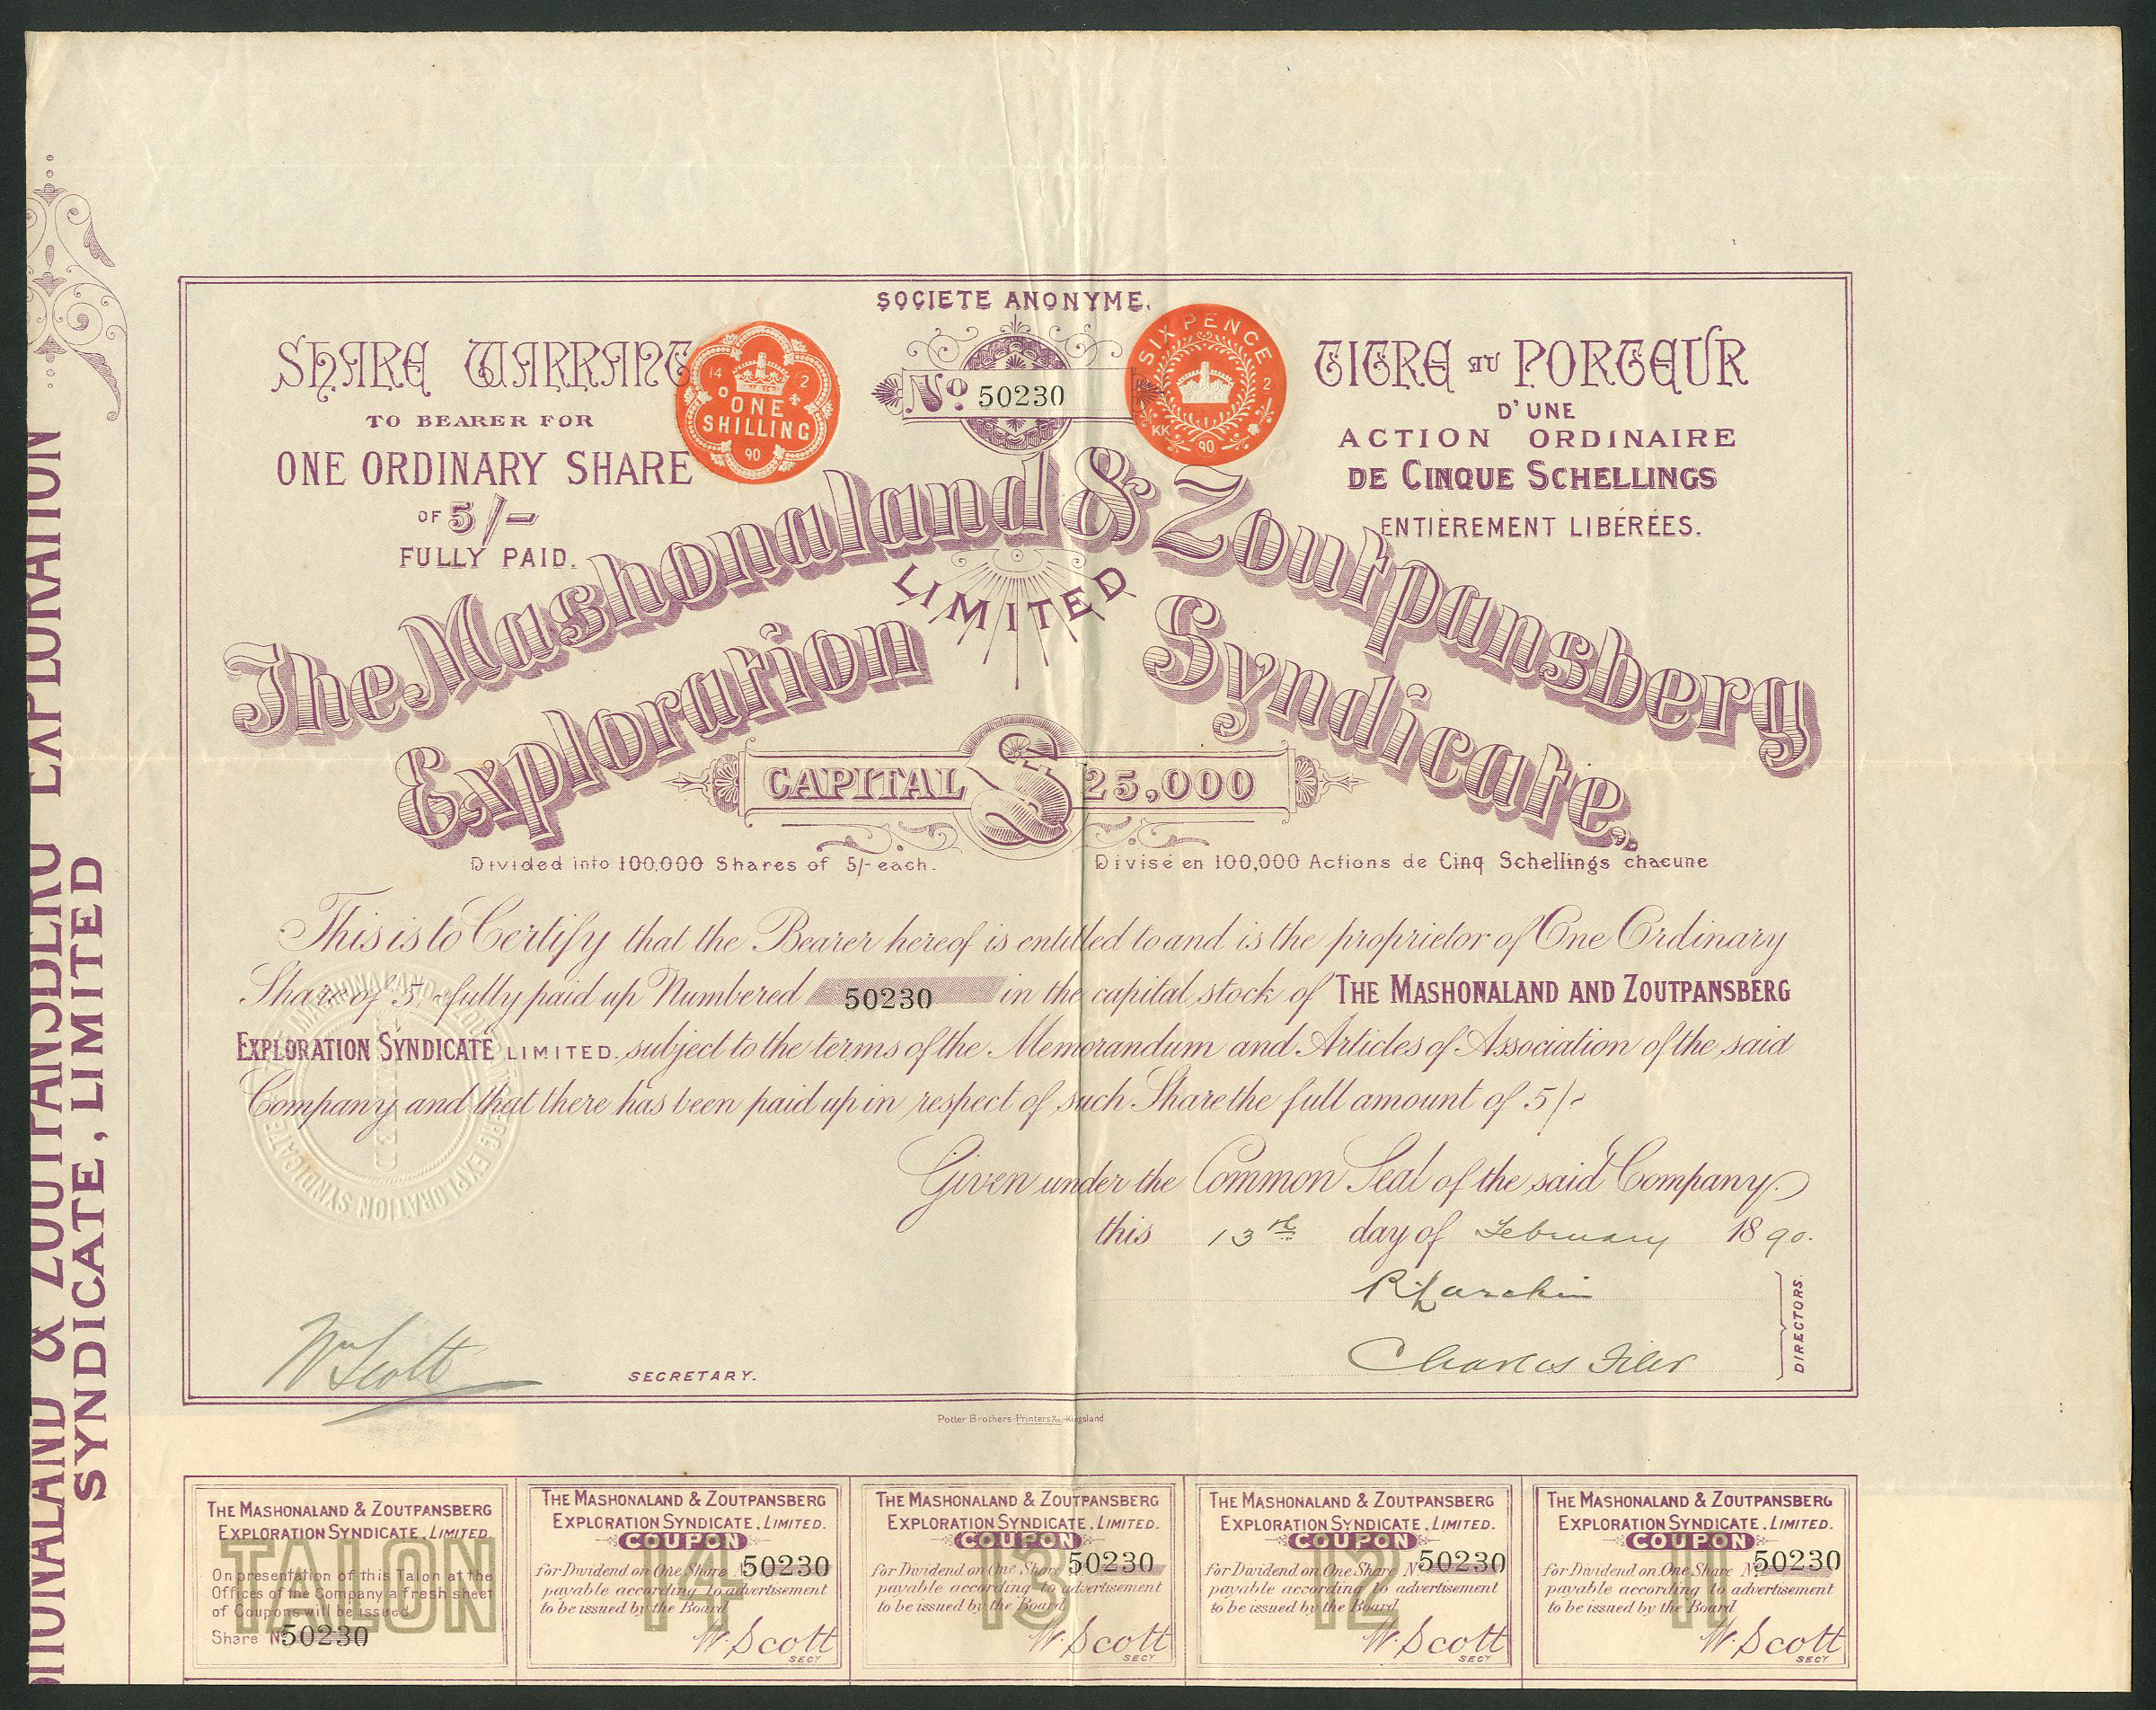 SOCIETE ANONYME.
SHARE WARRANT
TO BEARER FOR
ONE ORDINARY SHARE
OF 5/-
FULLY PAID.
14 2
ONE
SHILLING
90
No 50230
SIX PENCE
2
KK
90
TITRE AU PORTEUR
D'UNE
ACTION ORDINAIRE
DE CINQUE SCHELLINGS
ENTIÈREMENT LIBÉRÉES.
The Mashonaland & Zoutpansberg
Exploration LIMITED Syndicate,
CAPITAL £ 25,000
Divided into 100,000 Shares of 5/- each.
Divisé en 100,000 Actions de Cinq Schellings chacune.
This is to Certify that the Bearer hereof is entitled to and is the proprietor of One Ordinary
Share of 5/- fully paid up Numbered 50230 in the capital stock of THE MASHONALAND AND ZOUTPANSBERG
EXPLORATION SYNDICATE LIMITED. subject to the terms of the Memorandum and Articles of Association of the said
Company and that there has been paid up in respect of such Share the full amount of 5/-
Given under the Common Seal of the said Company.
this 13th day of February 1890.
Charles
DIRECTORS.
Wm Scott
SECRETARY.
Potter Brothers Printers &c. Kingsland
MASHONALAND & ZOUTPANSBERG EXPLORATION
SYNDICATE, LIMITED
THE MASHONALAND & ZOUTPANSBERG
EXPLORATION SYNDICATE, LIMITED.
TALON
On presentation of this Talon at the
Offices of the Company a fresh sheet
of Coupons will be issued
Share No 50230
THE MASHONALAND & ZOUTPANSBERG
EXPLORATION SYNDICATE, LIMITED.
COUPON
14
for Dividend on One Share No 50230
payable according to advertisement
to be issued by the Board
W. Scott
SECY
THE MASHONALAND & ZOUTPANSBERG
EXPLORATION SYNDICATE, LIMITED.
COUPON
13
for Dividend on One Share 50230
payable according to advertisement
to be issued by the Board
W. Scott
SECY
THE MASHONALAND & ZOUTPANSBERG
EXPLORATION SYNDICATE, LIMITED.
COUPON
12
for Dividend on One Share No 50230
payable according to advertisement
to be issued by the Board
W. Scott
SECY
THE MASHONALAND & ZOUTPANSBERG
EXPLORATION SYNDICATE, LIMITED.
COUPON
11
for Dividend on One Share No 50230
payable according to advertisement
to be issued by the Board
W. Scott
SECY